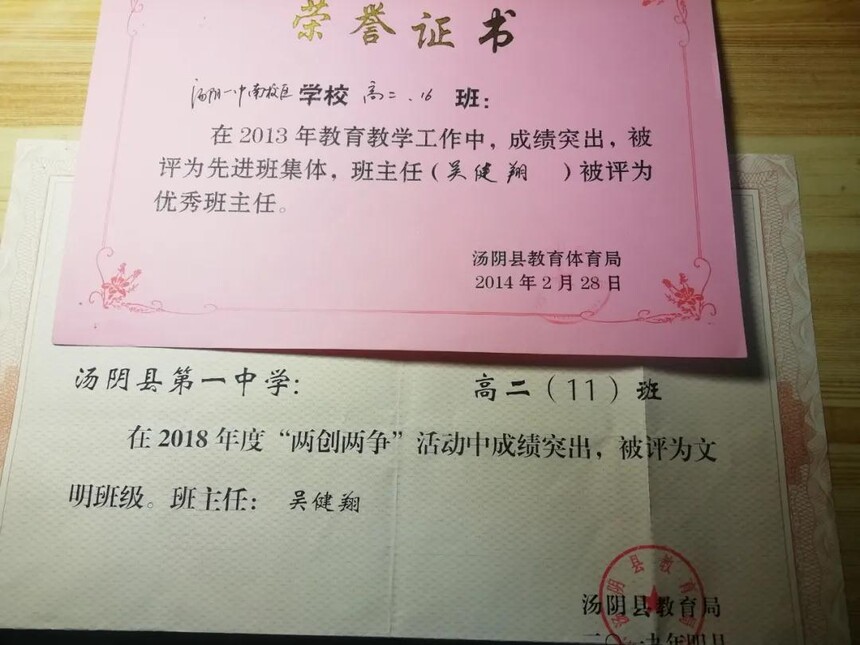 荣誉证书
汤阴一中南校区 学校 高二、16 班：
在 2013 年教育教学工作中，成绩突出，被
评为先进班集体，班主任（吴健翔 ）被评为
优秀班主任。
汤阴县教育体育局
2014 年 2 月 28 日
汤阴县第一中学： 高二（11）班
在 2018 年度“两创两争”活动中成绩突出，被评为文
明班级。班主任： 吴健翔
汤阴县教育局
二〇一九年四月